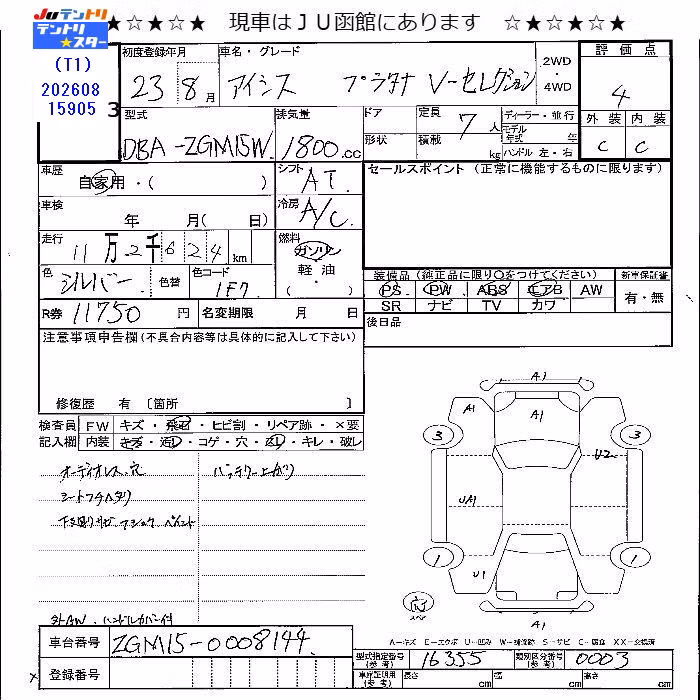 Juテントリ
テントリ
スター
★☆★☆★ 現車はJU函館にあります ☆★☆★☆★
(T1)
202608
15905 3
初度登録年月
23 8月
車名・グレード
アイシス プラタナ V-セレクション
2WD
・
4WD
評価点
4
外装 内装
C C
型式
DBA-ZGM15W
排気量
1800cc
ドア
形状
定員
7人
積載
kg
ディーラー・並行
モデル年式 年
ハンドル 左・右
車歴
自家用・( )
シフト
AT
セールスポイント (正常に機能するものに限ります)
車検
年 月( 日)
冷房
A/C
走行
11万2千624km
燃料
ガソリン
軽油
( ・ )
色
シルバー
色替
色コード
1F7
装備品(純正品に限り○をつけてください)
新車保証書
PS PW ABS エアB AW
SR ナビ TV カワ
有・無
R券 11750円
名変期限 月 日
後日品
注意事項申告欄(不具合内容等は具体的に記入して下さい)
修復歴 有 〔箇所 〕
検査員記入欄
FW キズ・飛石・ヒビ割・リペア跡・×要
内装 キズ・汚レ・コゲ・穴・戻し・キレ・破レ
オーディオレス、穴
バッテリー上がり
シートフチヘタリ
下廻りサビ マショク ペイント
社外AW、ハンドルカバー付
A1
A1 A1
3 3
U2
UA1
1 1
U1 A1
スペア
A1
A…キズ E…エクボ U…凹み W…補修跡 S…サビ C…腐食 XX…交換済
車台番号
ZGM15-0008144
登録番号
型式指定番号(参考)
16355
類別区分番号(参考)
0003
車庫証明用(参考)
長さ cm 幅 cm 高さ cm